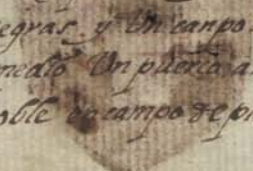 egras, y Un canpo
medio Un puerco a
oble en campo de p